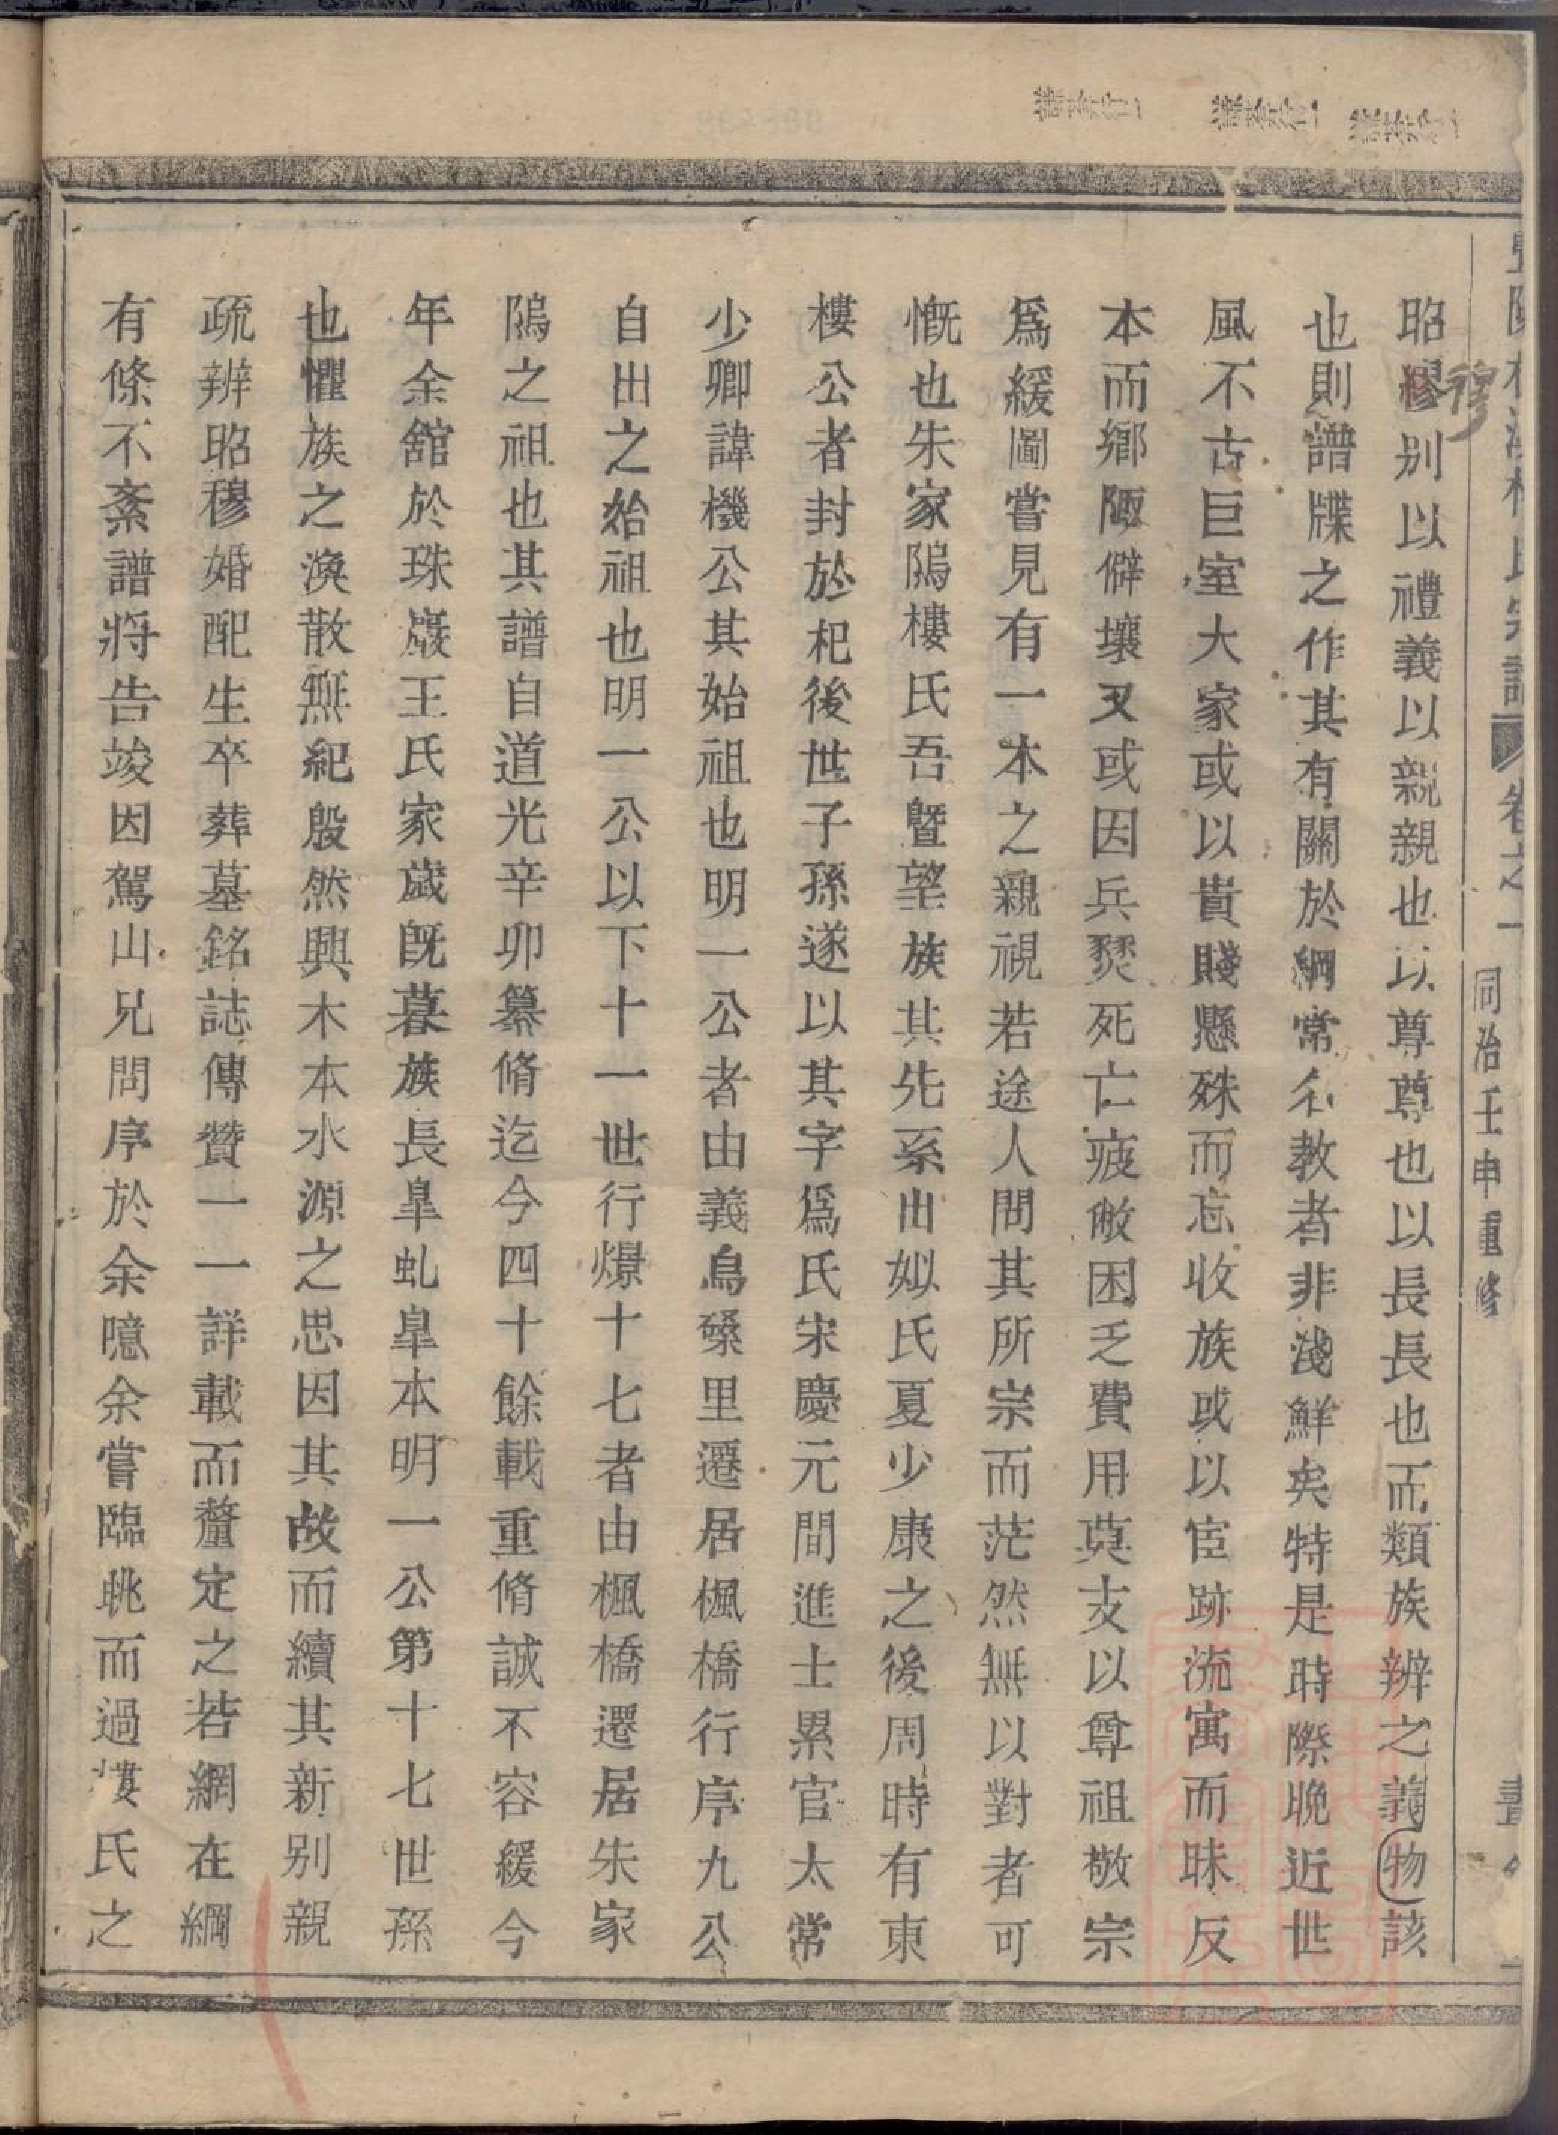 宗譜 卷之一 同治壬申重修
穆
昭繆别以禮義以親親也以尊尊也以長長也而類族辨之義物該
也則譜牒之作其有關於綱常名教者非淺鮮矣特是時際晚近世
風不古巨室大家或以貴賤懸殊而忘收族或以宦跡流寓而昧反
本而鄉陬僻壤又或因兵燹死亡疲敝困乏費用莫支以尊祖敬宗
爲緩圖嘗見有一本之親視若途人問其所宗而茫然無以對者可
慨也朱家隝樓氏吾暨望族其先系出姒氏夏少康之後周時有東
樓公者封於杞後世子孫遂以其字爲氏宋慶元間進士累官太常
少卿諱機公其始祖也明一公者由義烏磉里遷居楓橋行序九公
自出之始祖也明一公以下十一世行燝十七者由楓橋遷居朱家
隝之祖也其譜自道光辛卯纂脩迄今四十餘載重脩誠不容緩今
年余舘於珠巖王氏家歲既暮族長臯虬臯本明一公第十七世孫
也懼族之渙散無紀殷然興木本水源之思因其故而續其新别親
疏辨昭穆婚配生卒葬墓銘誌傳贊一一詳載而釐定之若網在綱
有條不紊譜將告竣因駕山兄問序於余噫余嘗臨眺而過樓氏之